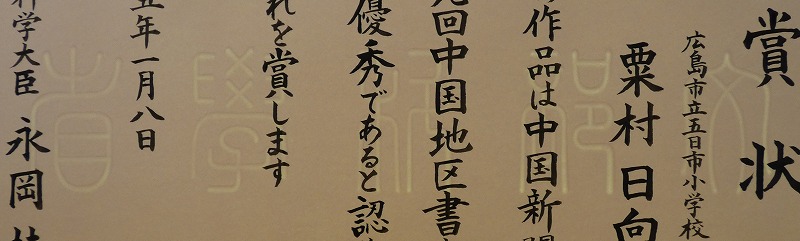 賞状
広島市立五日市小学校
粟村日向
作品は中国新聞
回中国地区書
優秀であると認
れを賞します
五年一月八日
科学大臣 永岡桂